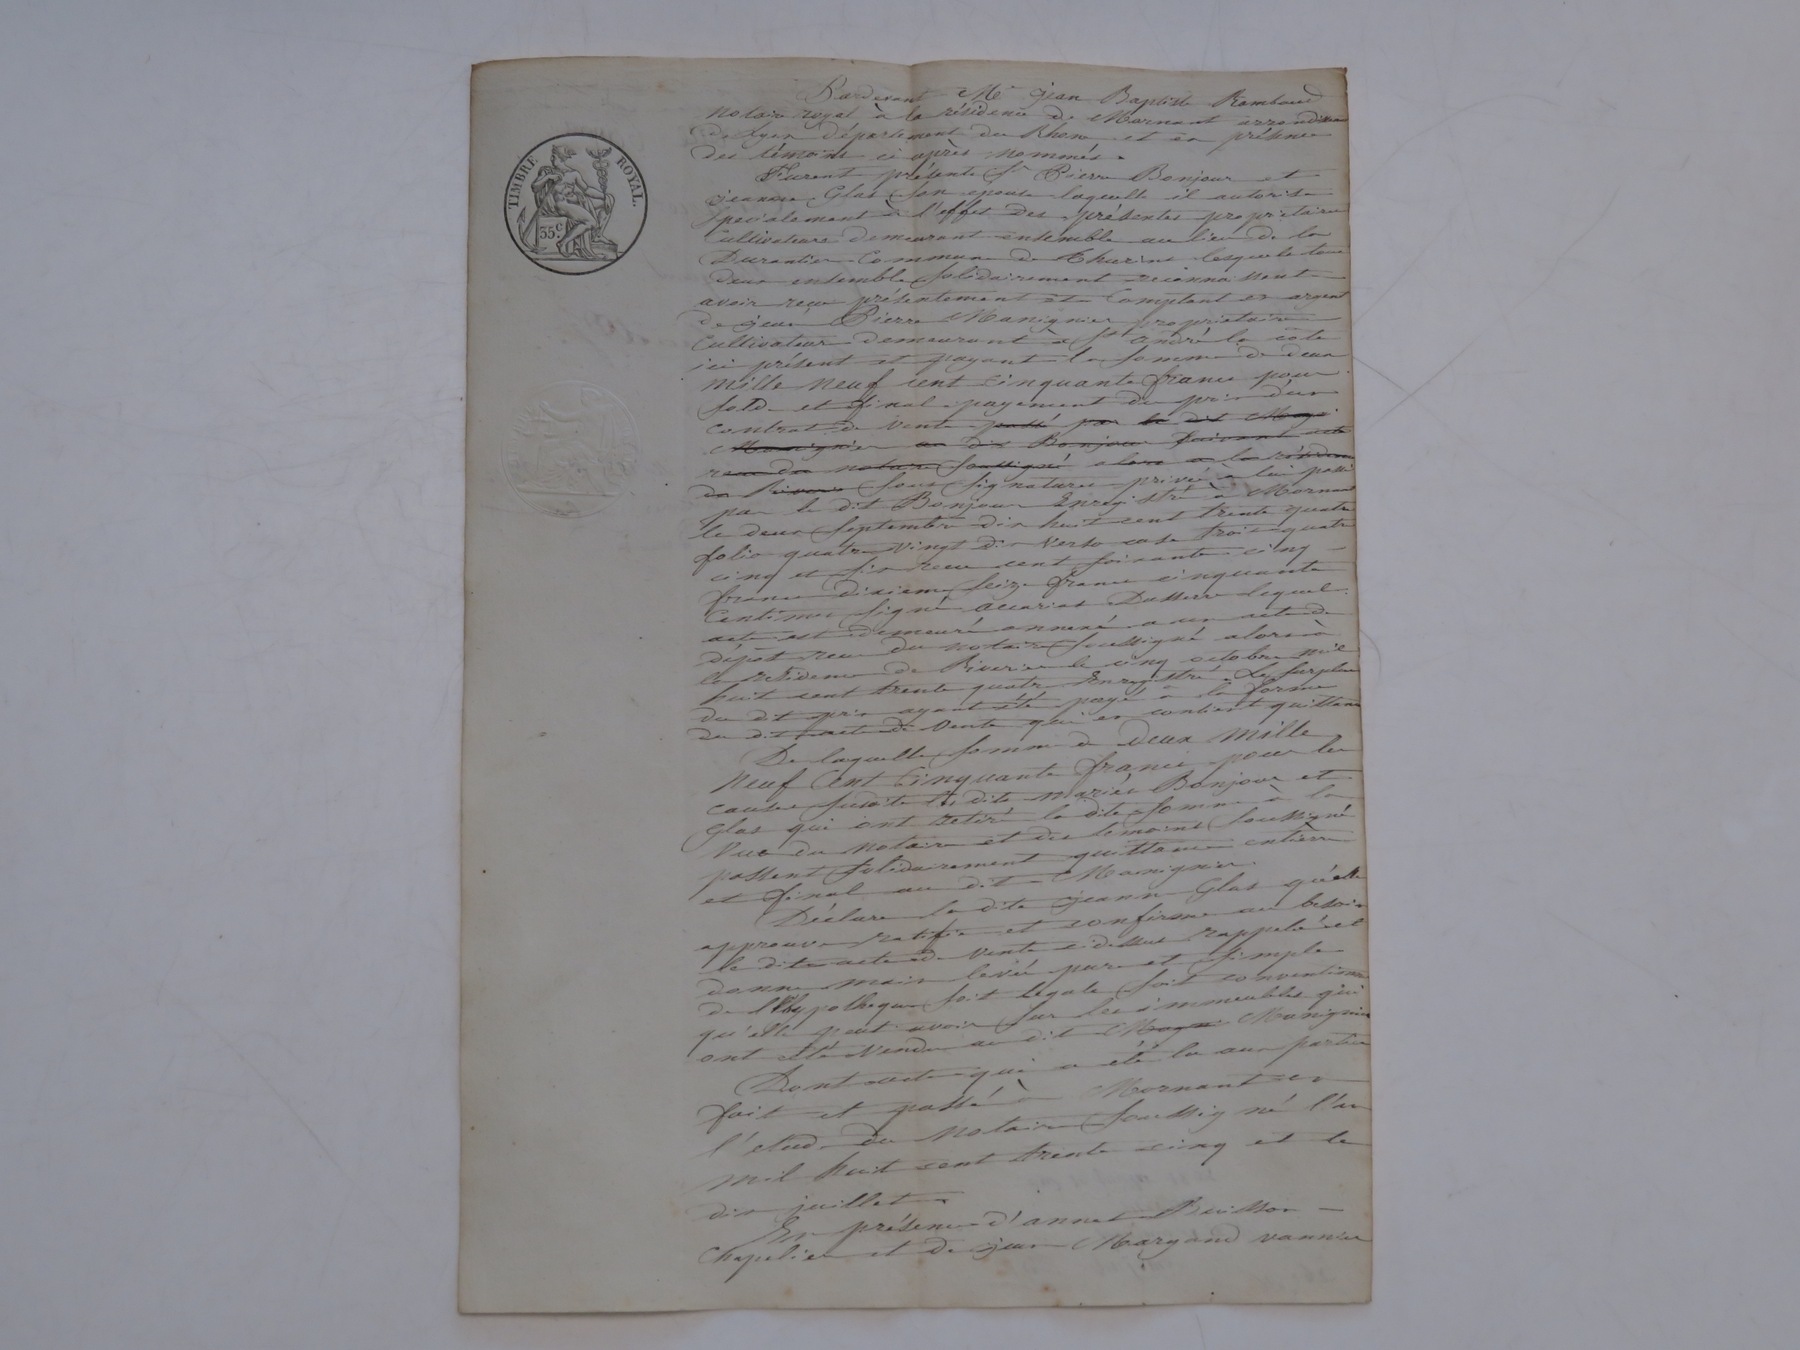 TIMBRE ROYAL.
35c.
Pardevant Me Jean Baptiste Rambaud
Notaire royal à la résidence de Mornant arrondissem
de Lyon département du Rhone et en présence
des témoins ci après nommés.
Furent présents Sr Pierre Bonjour et
jeanne Glas son epouse laquelle il autorise
specialement à l'effet des présentes propriétaires
Cultivateurs demeurant ensemble au lieu de la
Durantier Commune de Thurins lesquels tous
deux ensemble solidairement reconnaissent
avoir reçu présentement et Comptant en argent
de jean Pierre Manignier propriétaire
Cultivateur demeurant à St andré la cote
ici présent et payant la somme de deux
mille neuf cent cinquante francs pour
solde et final payement du prix d'un
contrat de vente passé par le dit Magi
Manignier au dit Bonjour suivant acte
reçu du notaire soussigné alors à la résidence
de Riverie sous signatures privées à lui passé
par le dit Bonjour Enregistré à Mornant
le deux septembre dix huit cent trente quatre
folio quatre vingt dix verso case trois quatre
cinq et six reçu cent soixante cinq
francs dixieme seize francs cinquante
Centimes signé lequel
acte est demeuré annexé a un acte de
dépot reçu du notaire soussigné alors à
la résidence de Riverie le cinq octobre mil
huit cent trente quatre Enregistré. Le surplus
du dit prix ayant été payé à la forme
du dit acte de vente qui en contient quittance
De laquelle somme de deux mille
Neuf Cent Cinquante francs pour les
causes susdite les dits mariés Bonjour et
Glas qui ont retiré la dite somme à la
Vue du notaire et des temoins soussignés
passent solidairement quittance entière
et final au dit Manignier.
Déclare la dite jeanne Glas qu'elle
approuve ratifie et confirme au besoin
le dit acte de vente cidessus rappelé et
donne main levée pure et simple
de l'hypotheque soit legale soit conventionnelle
qu'elle peut avoir sur les immeubles qui
ont été vendu au dit Magn Manignier
Dont acte qui a été lu aux parties
fait et passé à Mornant en
l'etude du Notaire soussigné l'an
mil huit cent trente cinq et le
dix juillet.
En présence d'annet Buisson
Chapelier et de jean Margand vannier